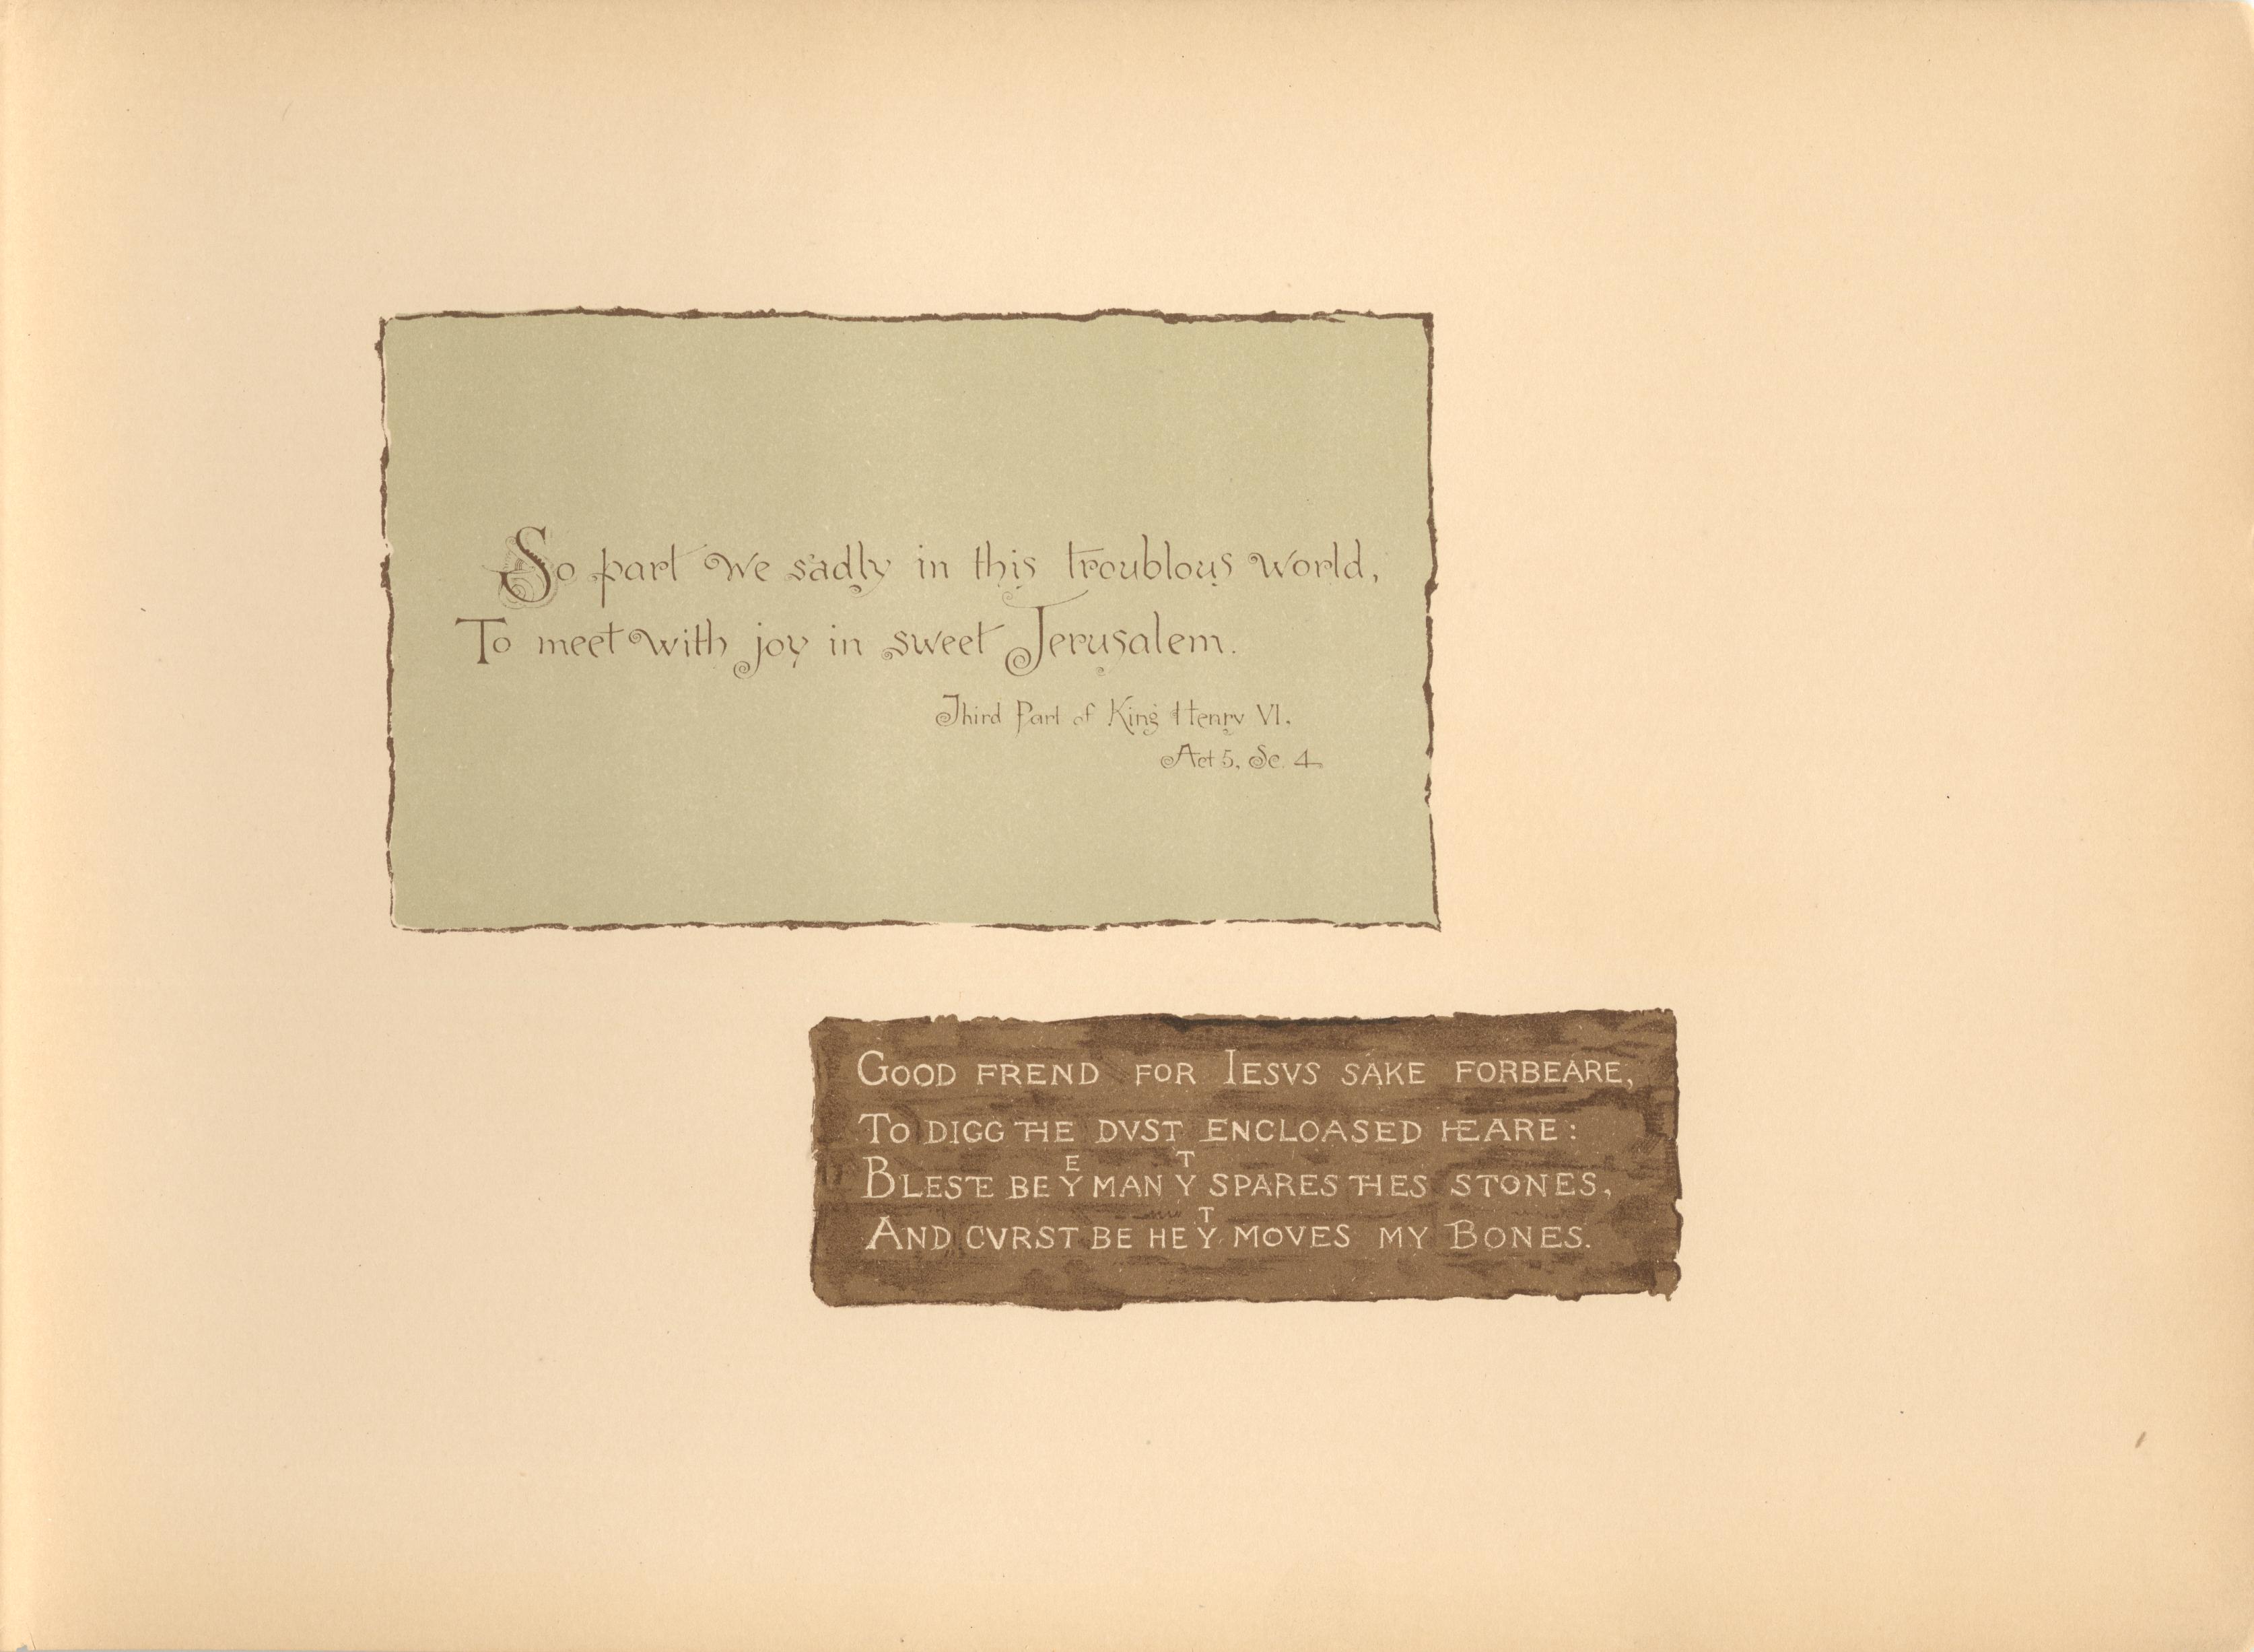 So part we sadly in this troublous world,
To meet with joy in sweet Jerusalem.
Third Part of King Henry VI.
Act 5, Sc. 4
GOOD FREND FOR IESVS SAKE FORBEARE,
TO DIGG THE DVST ENCLOASED HEARE:
BLESTE BE Yᴱ MAN Yᵀ SPARES THES STONES,
AND CVRST BE HE Yᵀ MOVES MY BONES.